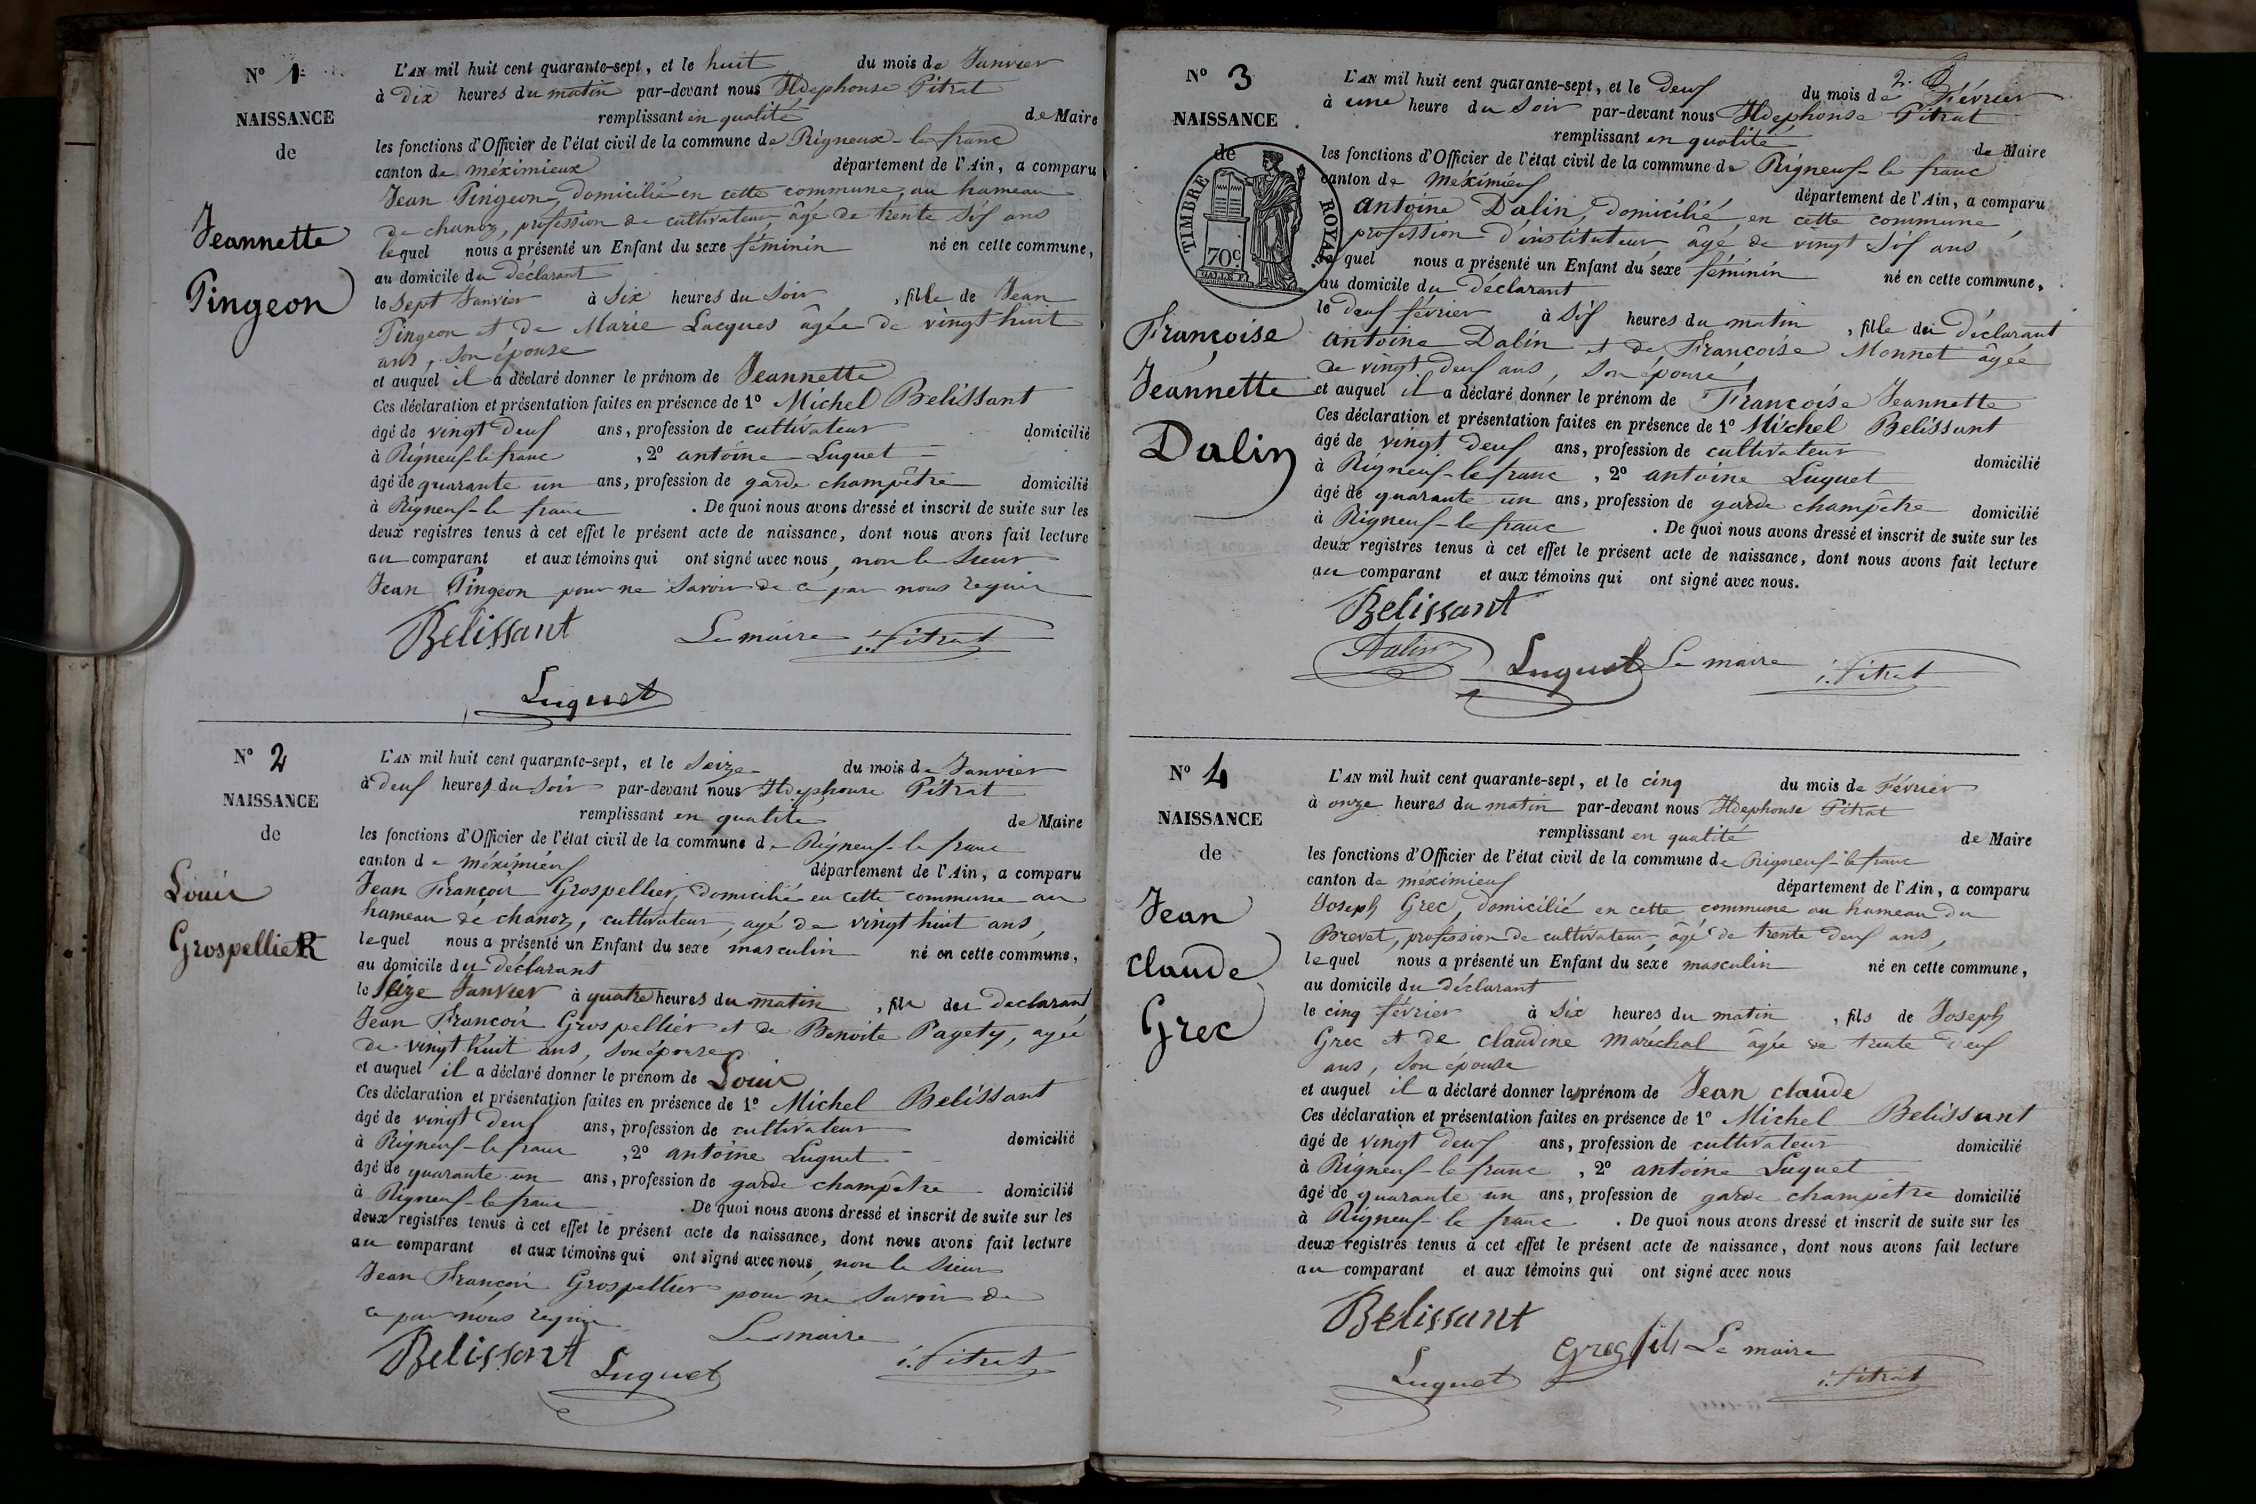 N° 1
NAISSANCE
de
Jeannette
Pingeon
L'AN mil huit cent quarante-sept, et le huit du mois de Janvier
à Dix heures du matin par-devant nous Ildephonse Pitrat
remplissant en qualité de Maire
les fonctions d'Officier de l'état civil de la commune de Rigneux-le franc
canton de méximieux département de l'Ain, a comparu
Jean Pingeon, domicilié en cette commune, au hameau
de chanoz, profession de cultivateur âgé de trente six ans
lequel nous a présenté un Enfant du sexe féminin né en cette commune,
au domicile du déclarant
le sept Janvier à six heures du soir, fille de Jean
Pingeon et de Marie Lacques âgée de vingt huit
ans, son épouse
et auquel il a déclaré donner le prénom de Jeannette
Ces déclaration et présentation faites en présence de 1° Michel Belissant
âgé de vingt deux ans, profession de cultivateur domicilié
à Rigneux-le franc, 2° antoine Luquet
âgé de quarante un ans, profession de garde champêtre domicilié
à Rigneux-le franc. De quoi nous avons dressé et inscrit de suite sur les
deux registres tenus à cet effet le présent acte de naissance, dont nous avons fait lecture
au comparant et aux témoins qui ont signé avec nous, non le sieur
Jean Pingeon pour ne savoir de ce par nous requis
Belissant Le maire i. Pitrat
Luquet
N° 2
NAISSANCE
de
Louis
GrospellieR
L'AN mil huit cent quarante-sept, et le seize du mois de Janvier
à deux heures du soir par-devant nous Ildephonse Pitrat
remplissant en qualité de Maire
les fonctions d'Officier de l'état civil de la commune de Rigneux-le franc
canton de méximieux département de l'Ain, a comparu
Jean François Grospellier, domicilié en cette commune au
hameau de chanoz, cultivateur, agé de vingt huit ans,
lequel nous a présenté un Enfant du sexe masculin né en cette commune,
au domicile du déclarant
le seize Janvier à quatre heures du matin, fils du declarant
Jean François Grospellier et de Benoite Pagety, agée
de vingt huit ans, son épouse
et auquel il a déclaré donner le prénom de Louis
Ces déclaration et présentation faites en présence de 1° Michel Belissant
âgé de vingt deux ans, profession de cultivateur domicilié
à Rigneux-le franc, 2° antoine Luquet
âgé de quarante un ans, profession de garde champêtre domicilié
à Rigneux-le franc. De quoi nous avons dressé et inscrit de suite sur les
deux registres tenus à cet effet le présent acte de naissance, dont nous avons fait lecture
au comparant et aux témoins qui ont signé avec nous, non le sieur
Jean François Grospellier pour ne savoir de
ce par nous requis
Belissant Luquet Le maire i. Pitrat
N° 3
NAISSANCE
de
TIMBRE ROYAL
70c
Françoise
Jeannette
Dalin
L'AN mil huit cent quarante-sept, et le deux du mois de Février
à une heure du soir par-devant nous Ildephonse Pitrat
remplissant en qualité de Maire
les fonctions d'Officier de l'état civil de la commune de Rigneux-le franc
canton de Méximieux département de l'Ain, a comparu
antoine Dalin, domicilié, en cette commune,
profession d'instituteur âgé de vingt six ans
lequel nous a présenté un Enfant du sexe féminin né en cette commune,
au domicile du déclarant
le deux février à six heures du matin, fille du déclarant
antoine Dalin et de Françoise Monnet âgée
de vingt deux ans, son épouse
et auquel il a déclaré donner le prénom de Françoise Jeannette
Ces déclaration et présentation faites en présence de 1° Michel Belissant
âgé de vingt deux ans, profession de cultivateur domicilié
à Rigneux-le franc, 2° antoine Luquet
âgé de quarante un ans, profession de garde champêtre domicilié
à Rigneux-le franc. De quoi nous avons dressé et inscrit de suite sur les
deux registres tenus à cet effet le présent acte de naissance, dont nous avons fait lecture
au comparant et aux témoins qui ont signé avec nous.
Belissant
Dalin Luquet Le maire i. Pitrat
N° 4
NAISSANCE
de
Jean
claude
Grec
L'AN mil huit cent quarante-sept, et le cinq du mois de Février
à onze heures du matin par-devant nous Ildephonse Pitrat
remplissant en qualité de Maire
les fonctions d'Officier de l'état civil de la commune de Rigneux-le franc
canton de méximieux département de l'Ain, a comparu
Joseph Grec, domicilié en cette commune au hameau du
Brevet, profession de cultivateur, âgé de trente deux ans,
lequel nous a présenté un Enfant du sexe masculin né en cette commune,
au domicile du déclarant
le cinq février à six heures du matin, fils de Joseph
Grec et de claudine maréchal âgée de trente deux
ans, son épouse
et auquel il a déclaré donner le prénom de Jean claude
Ces déclaration et présentation faites en présence de 1° Michel Belissant
âgé de vingt deux ans, profession de cultivateur domicilié
à Rigneux-le franc, 2° antoine Luquet
âgé de quarante un ans, profession de garde champêtre domicilié
à Rigneux-le franc. De quoi nous avons dressé et inscrit de suite sur les
deux registres tenus à cet effet le présent acte de naissance, dont nous avons fait lecture
au comparant et aux témoins qui ont signé avec nous
Belissant
Luquet Greg fils Le maire i. Pitrat